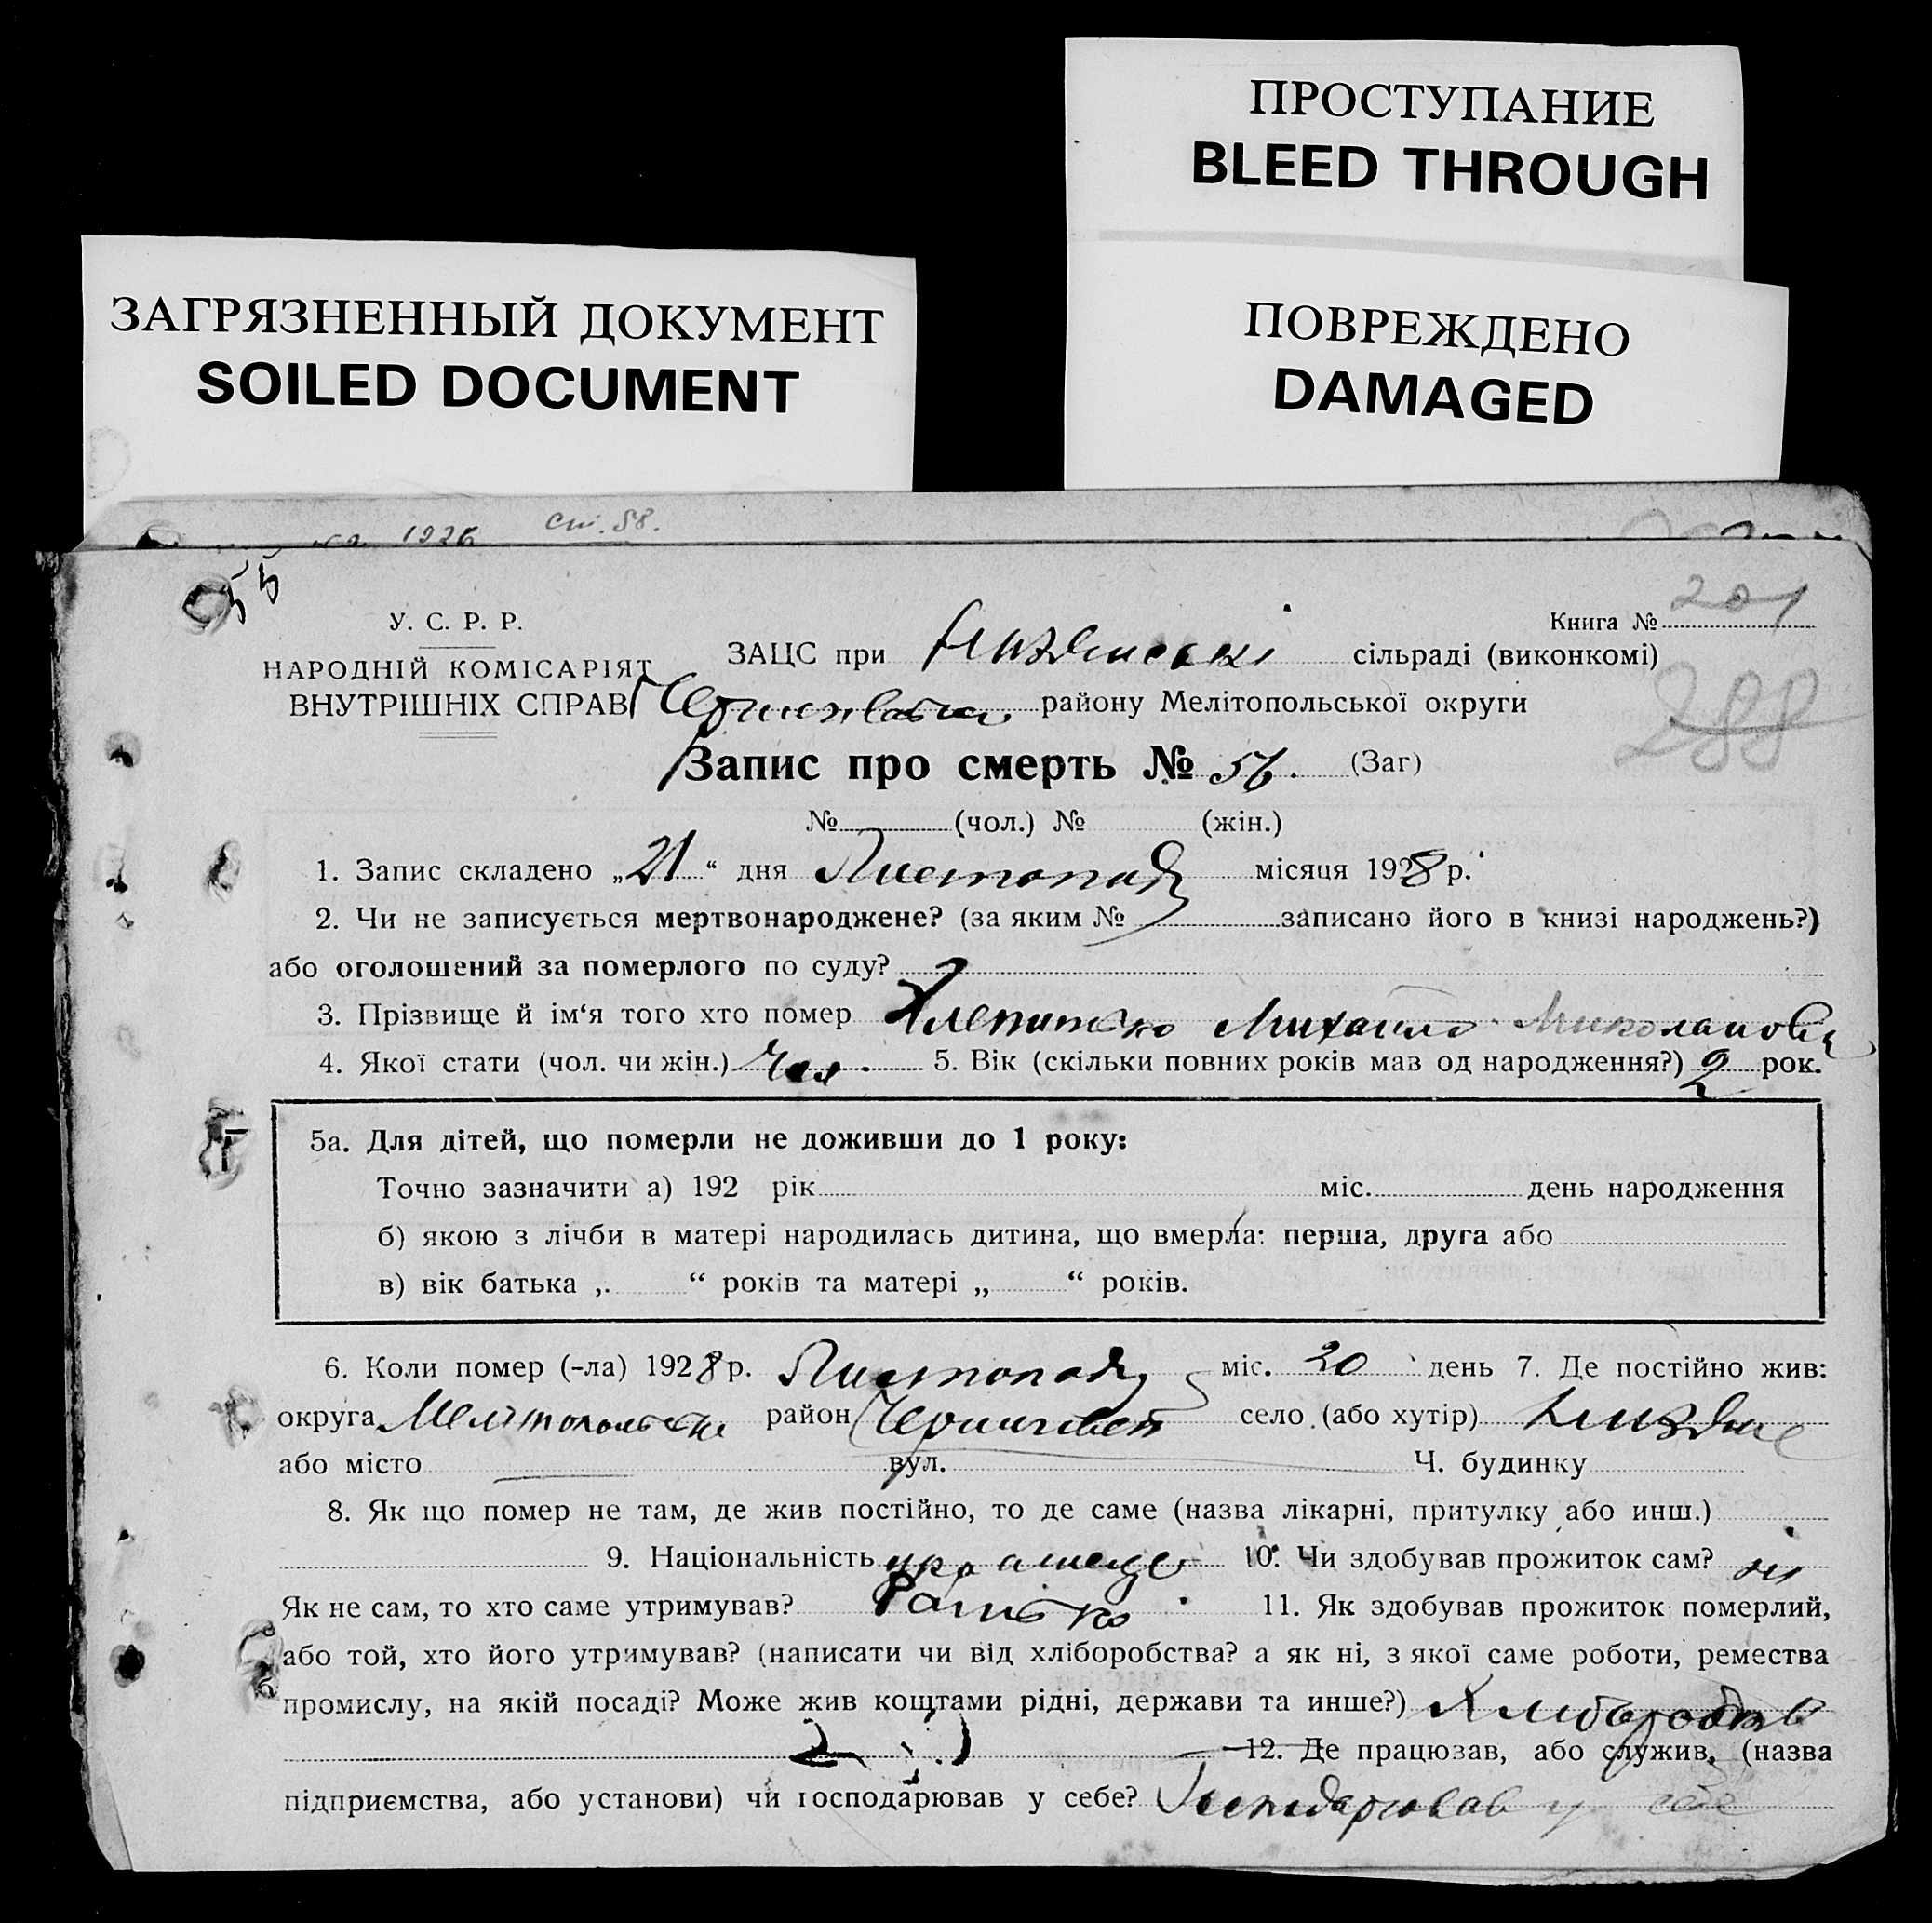 ПРОСТУПАНИЕ
BLEED THROUGH
ЗАГРЯЗНЕННЫЙ ДОКУМЕНТ
SOILED DOCUMENT
ПОВРЕЖДЕНО
DAMAGED
1926 ст. 58.
55
У. С. Р. Р.
НАРОДНІЙ КОМІСАРІЯТ
ВНУТРІШНІХ СПРАВ
Книга № 201
288
ЗАЦС при сільраді (виконкомі)
району Мелітопольської округи
Запис про смерть № 56. (Заг)
№ (чол.) № (жін.)
1. Запис складено „21“ дня Листопада місяця 1928 р.
2. Чи не записується мертвонароджене? (за яким № записано його в книзі народжень?)
або оголошений за померлого по суду?
3. Прізвище й ім‘я того хто помер Михайло Миколайович
4. Якої стати (чол. чи жін.) Чол. 5. Вік (скільки повних років мав од народження?) 2 рок.
5а. Для дітей, що померли не доживши до 1 року:
Точно зазначити а) 192 рік міс. день народження
б) якою з лічби в матері народилась дитина, що вмерла: перша, друга або
в) вік батька „ “ років та матері „ “ років.
6. Коли помер (-ла) 1928 р. Листопада міс. 20 день 7. Де постійно жив:
округа Мелітопольська район село (або хутір)
або місто вул. Ч. будинку
8. Як що помер не там, де жив постійно, то де саме (назва лікарні, притулку або инш.)
9. Національність 10. Чи здобував прожиток сам? ні
Як не сам, то хто саме утримував? Батько 11. Як здобував прожиток померлий,
або той, хто його утримував? (написати чи від хліборобства? а як ні, з якої саме роботи, ремества
промислу, на якій посаді? Може жив коштами рідні, держави та инше?)
12. Де працював, або служив, (назва
підприємства, або установи) чи господарював у себе? Господарював у себе